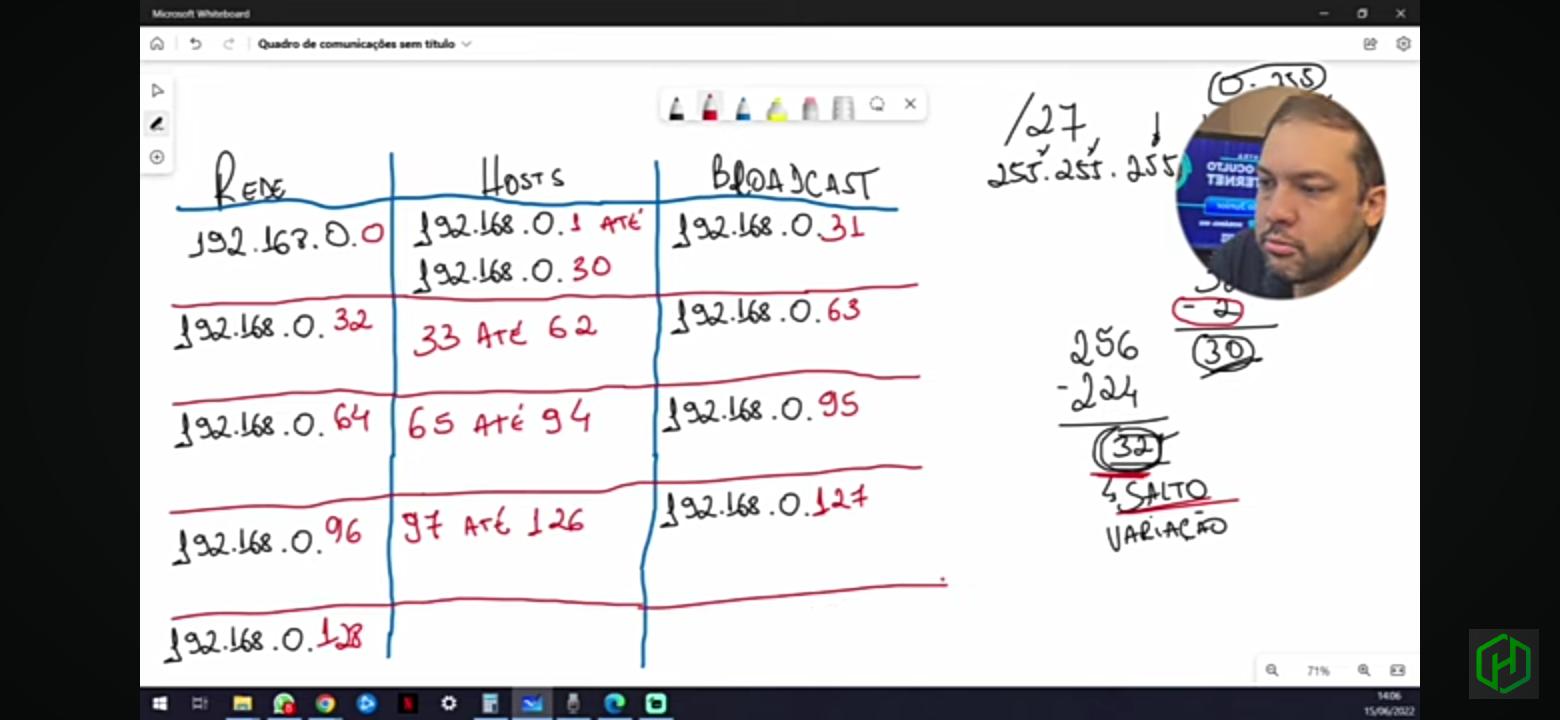 Microsoft Whiteboard
Quadro de comunicações sem título
REDE HOSTS BROADCAST
192.168.0.0 192.168.0.1 ATÉ 192.168.0.31
192.168.0.30
192.168.0.32 33 ATÉ 62 192.168.0.63
192.168.0.64 65 ATÉ 94 192.168.0.95
192.168.0.96 97 ATÉ 126 192.168.0.127
192.168.0.128
0-255
/27
255.255.255
OCULTO
- 2
30
256
-224
32
SALTO
VARIAÇÃO
71%
14:06
15/06/2022